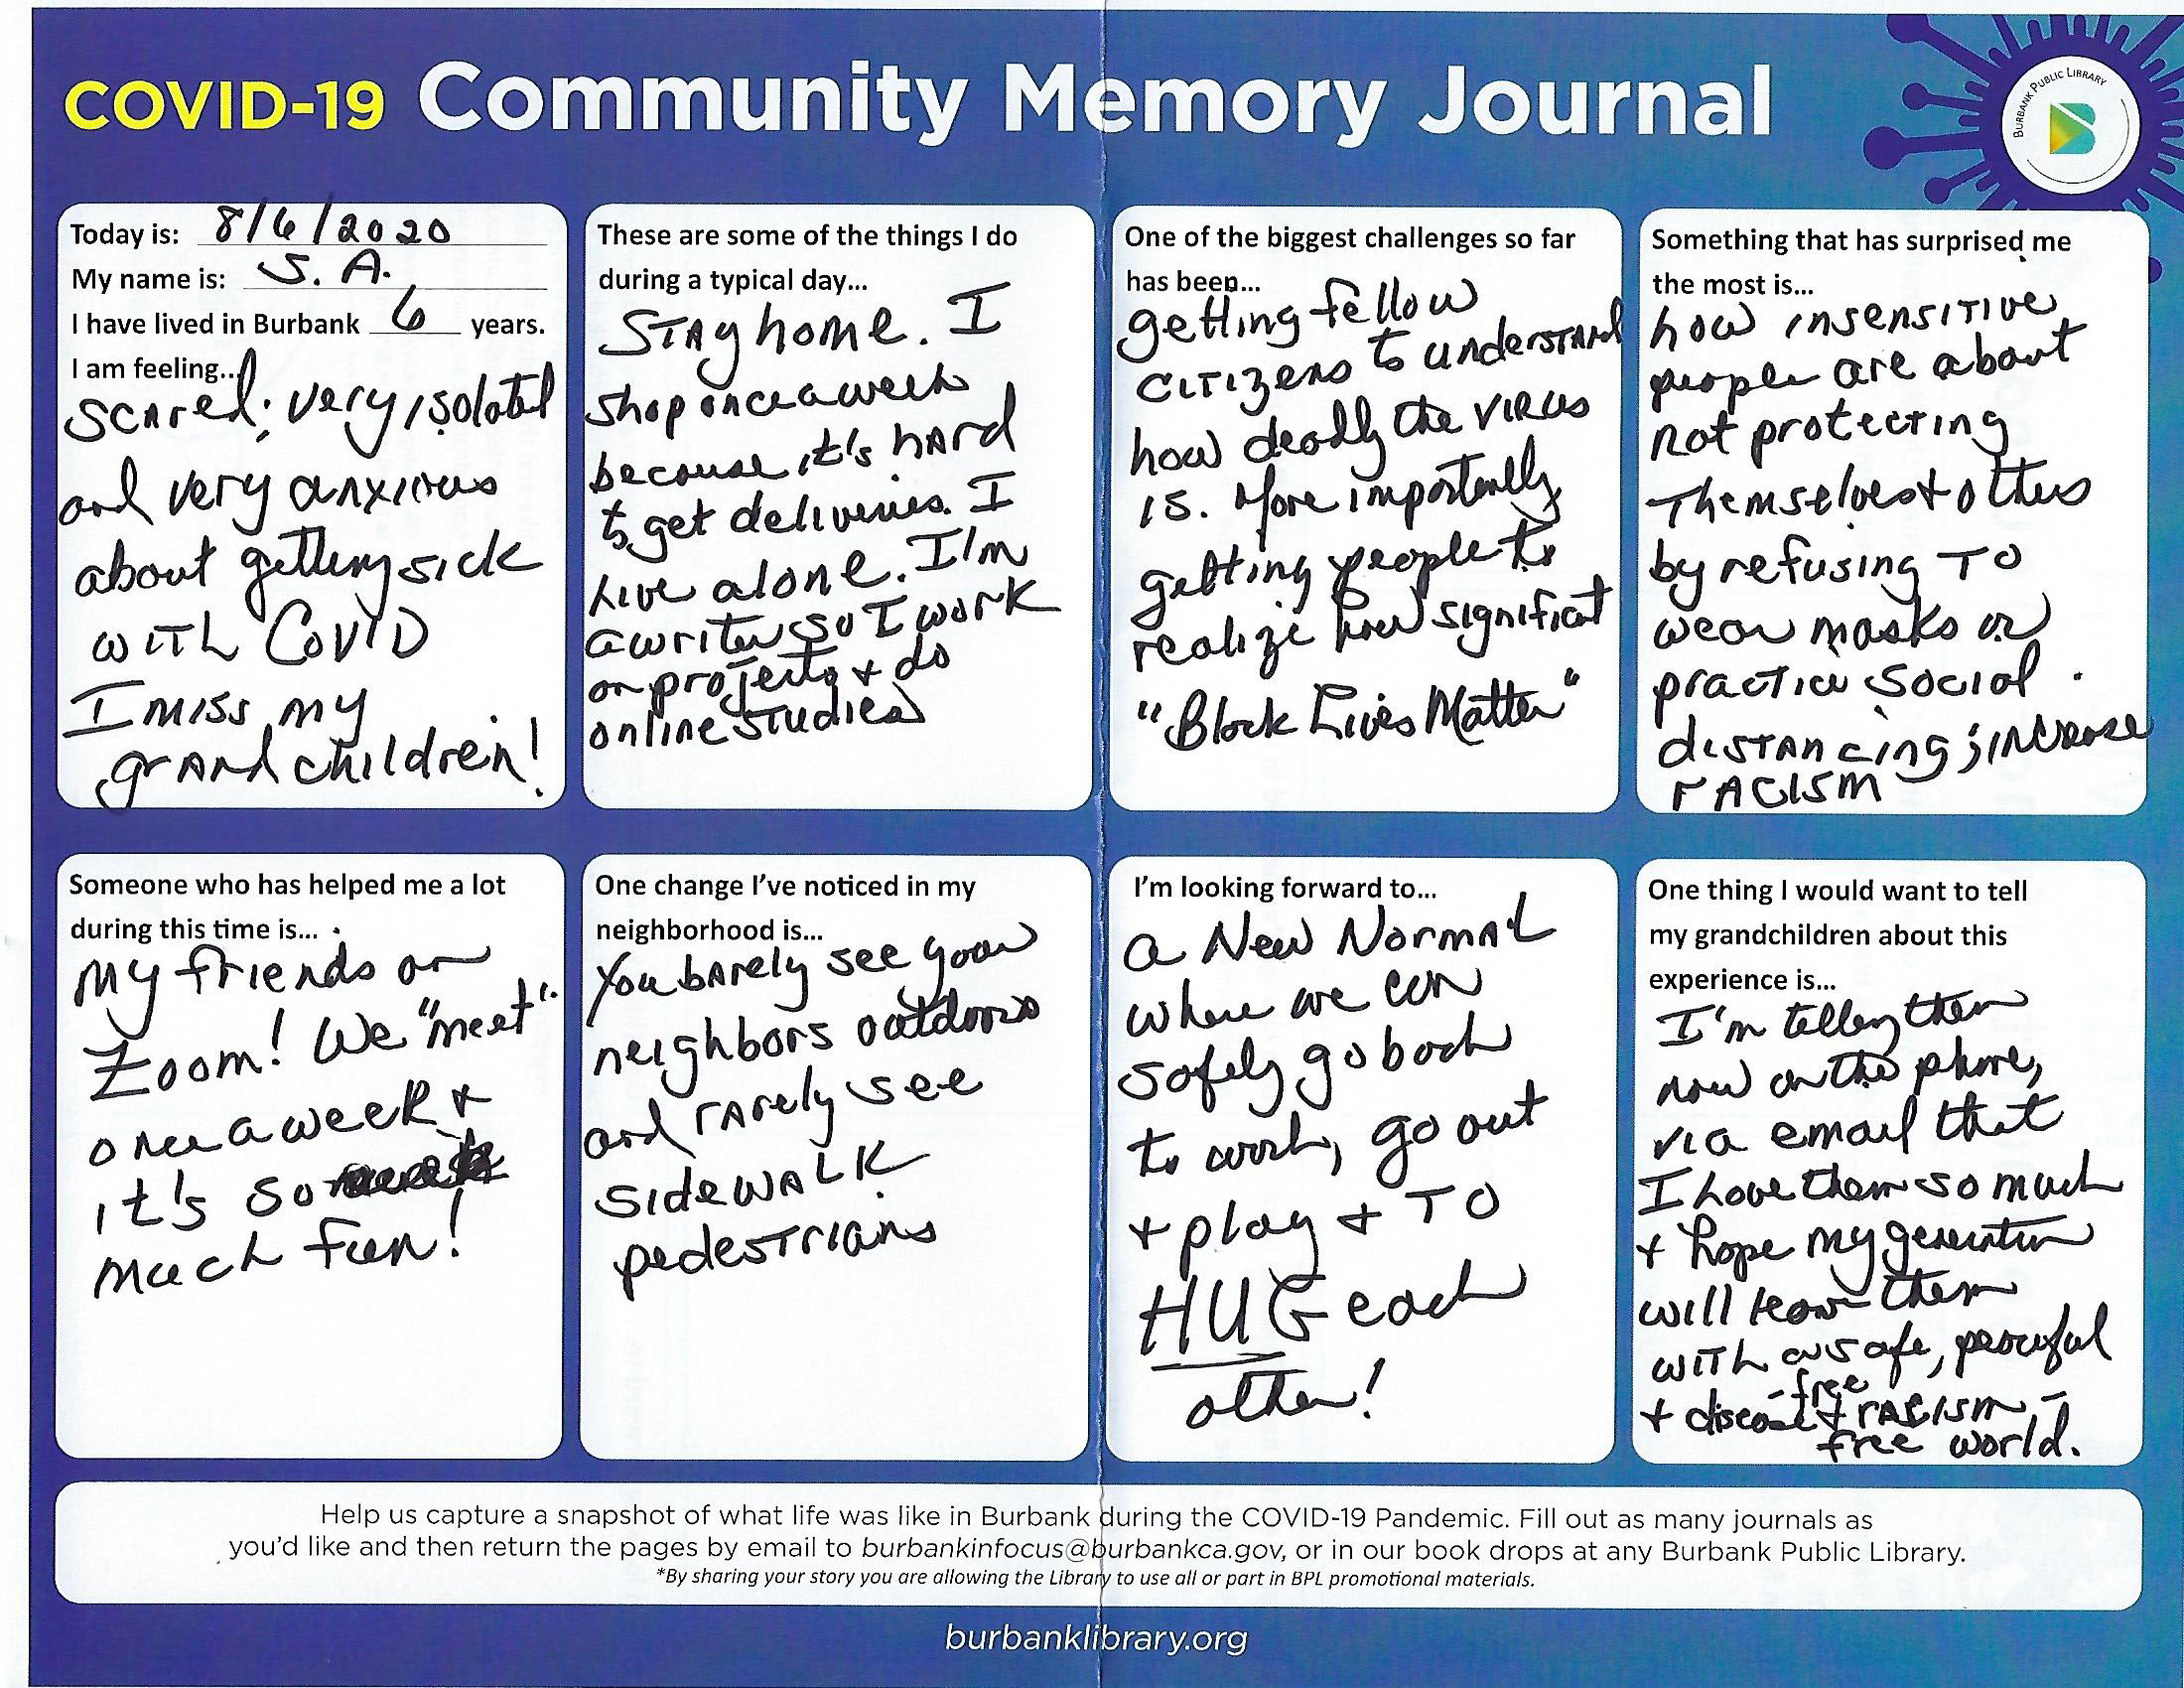 COVID-19 Community Memory Journal
BURBANK PUBLIC LIBRARY
B
Today is: 8/6/2020
My name is: S. A.
I have lived in Burbank 6 years.
I am feeling...
scared; very isolated
and very anxious
about getting sick
with COVID
I miss my
grandchildren!
These are some of the things I do
during a typical day...
Stay home. I
shop once a week
because it's hard
to get deliveries. I
live alone. I'm
a writer so I work
on projects + do
online studies
One of the biggest challenges so far
has been...
getting fellow
citizens to understand
how deadly the virus
is. More importantly
getting people to
realize how significat
"Black Lives Matter"
Something that has surprised me
the most is...
how insensitive
people are about
not protecting
themselves + others
by refusing to
wear masks or
practice social
distancing; increase
racism
Someone who has helped me a lot
during this time is...
My friends on
Zoom! We "meet"
once a week +
it's so
much fun!
One change I've noticed in my
neighborhood is...
You barely see your
neighbors outdoors
and rarely see
sidewalk
pedestrians
I'm looking forward to...
a New Normal
where we can
safely go back
to work, go out
+ play + to
HUG each
other!
One thing I would want to tell
my grandchildren about this
experience is...
I'm telling them
now on the phone,
via email that
I love them so much
+ hope my generation
will leave them
with a safe, peaceful
+ disease-free + racism-
free world.
Help us capture a snapshot of what life was like in Burbank during the COVID-19 Pandemic. Fill out as many journals as
you'd like and then return the pages by email to burbankinfocus@burbankca.gov, or in our book drops at any Burbank Public Library.
*By sharing your story you are allowing the Library to use all or part in BPL promotional materials.
burbanklibrary.org